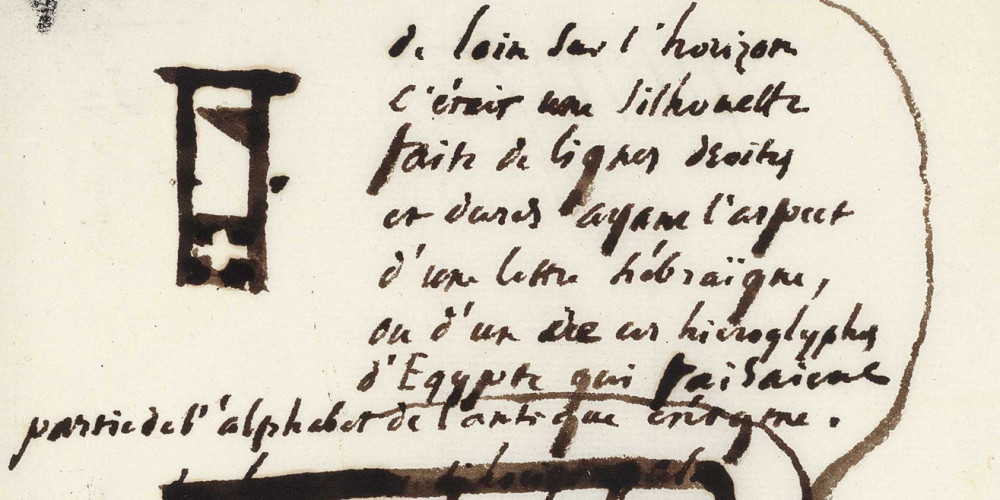 de loin sur l'horizon
c'était une silhouette
faite de lignes droites
et dures ayant l'aspect
d'une lettre hébraïque,
ou d'un de ces hiéroglyphes
d'Egypte qui faisaient
partie de l'alphabet de l'antique énigme.